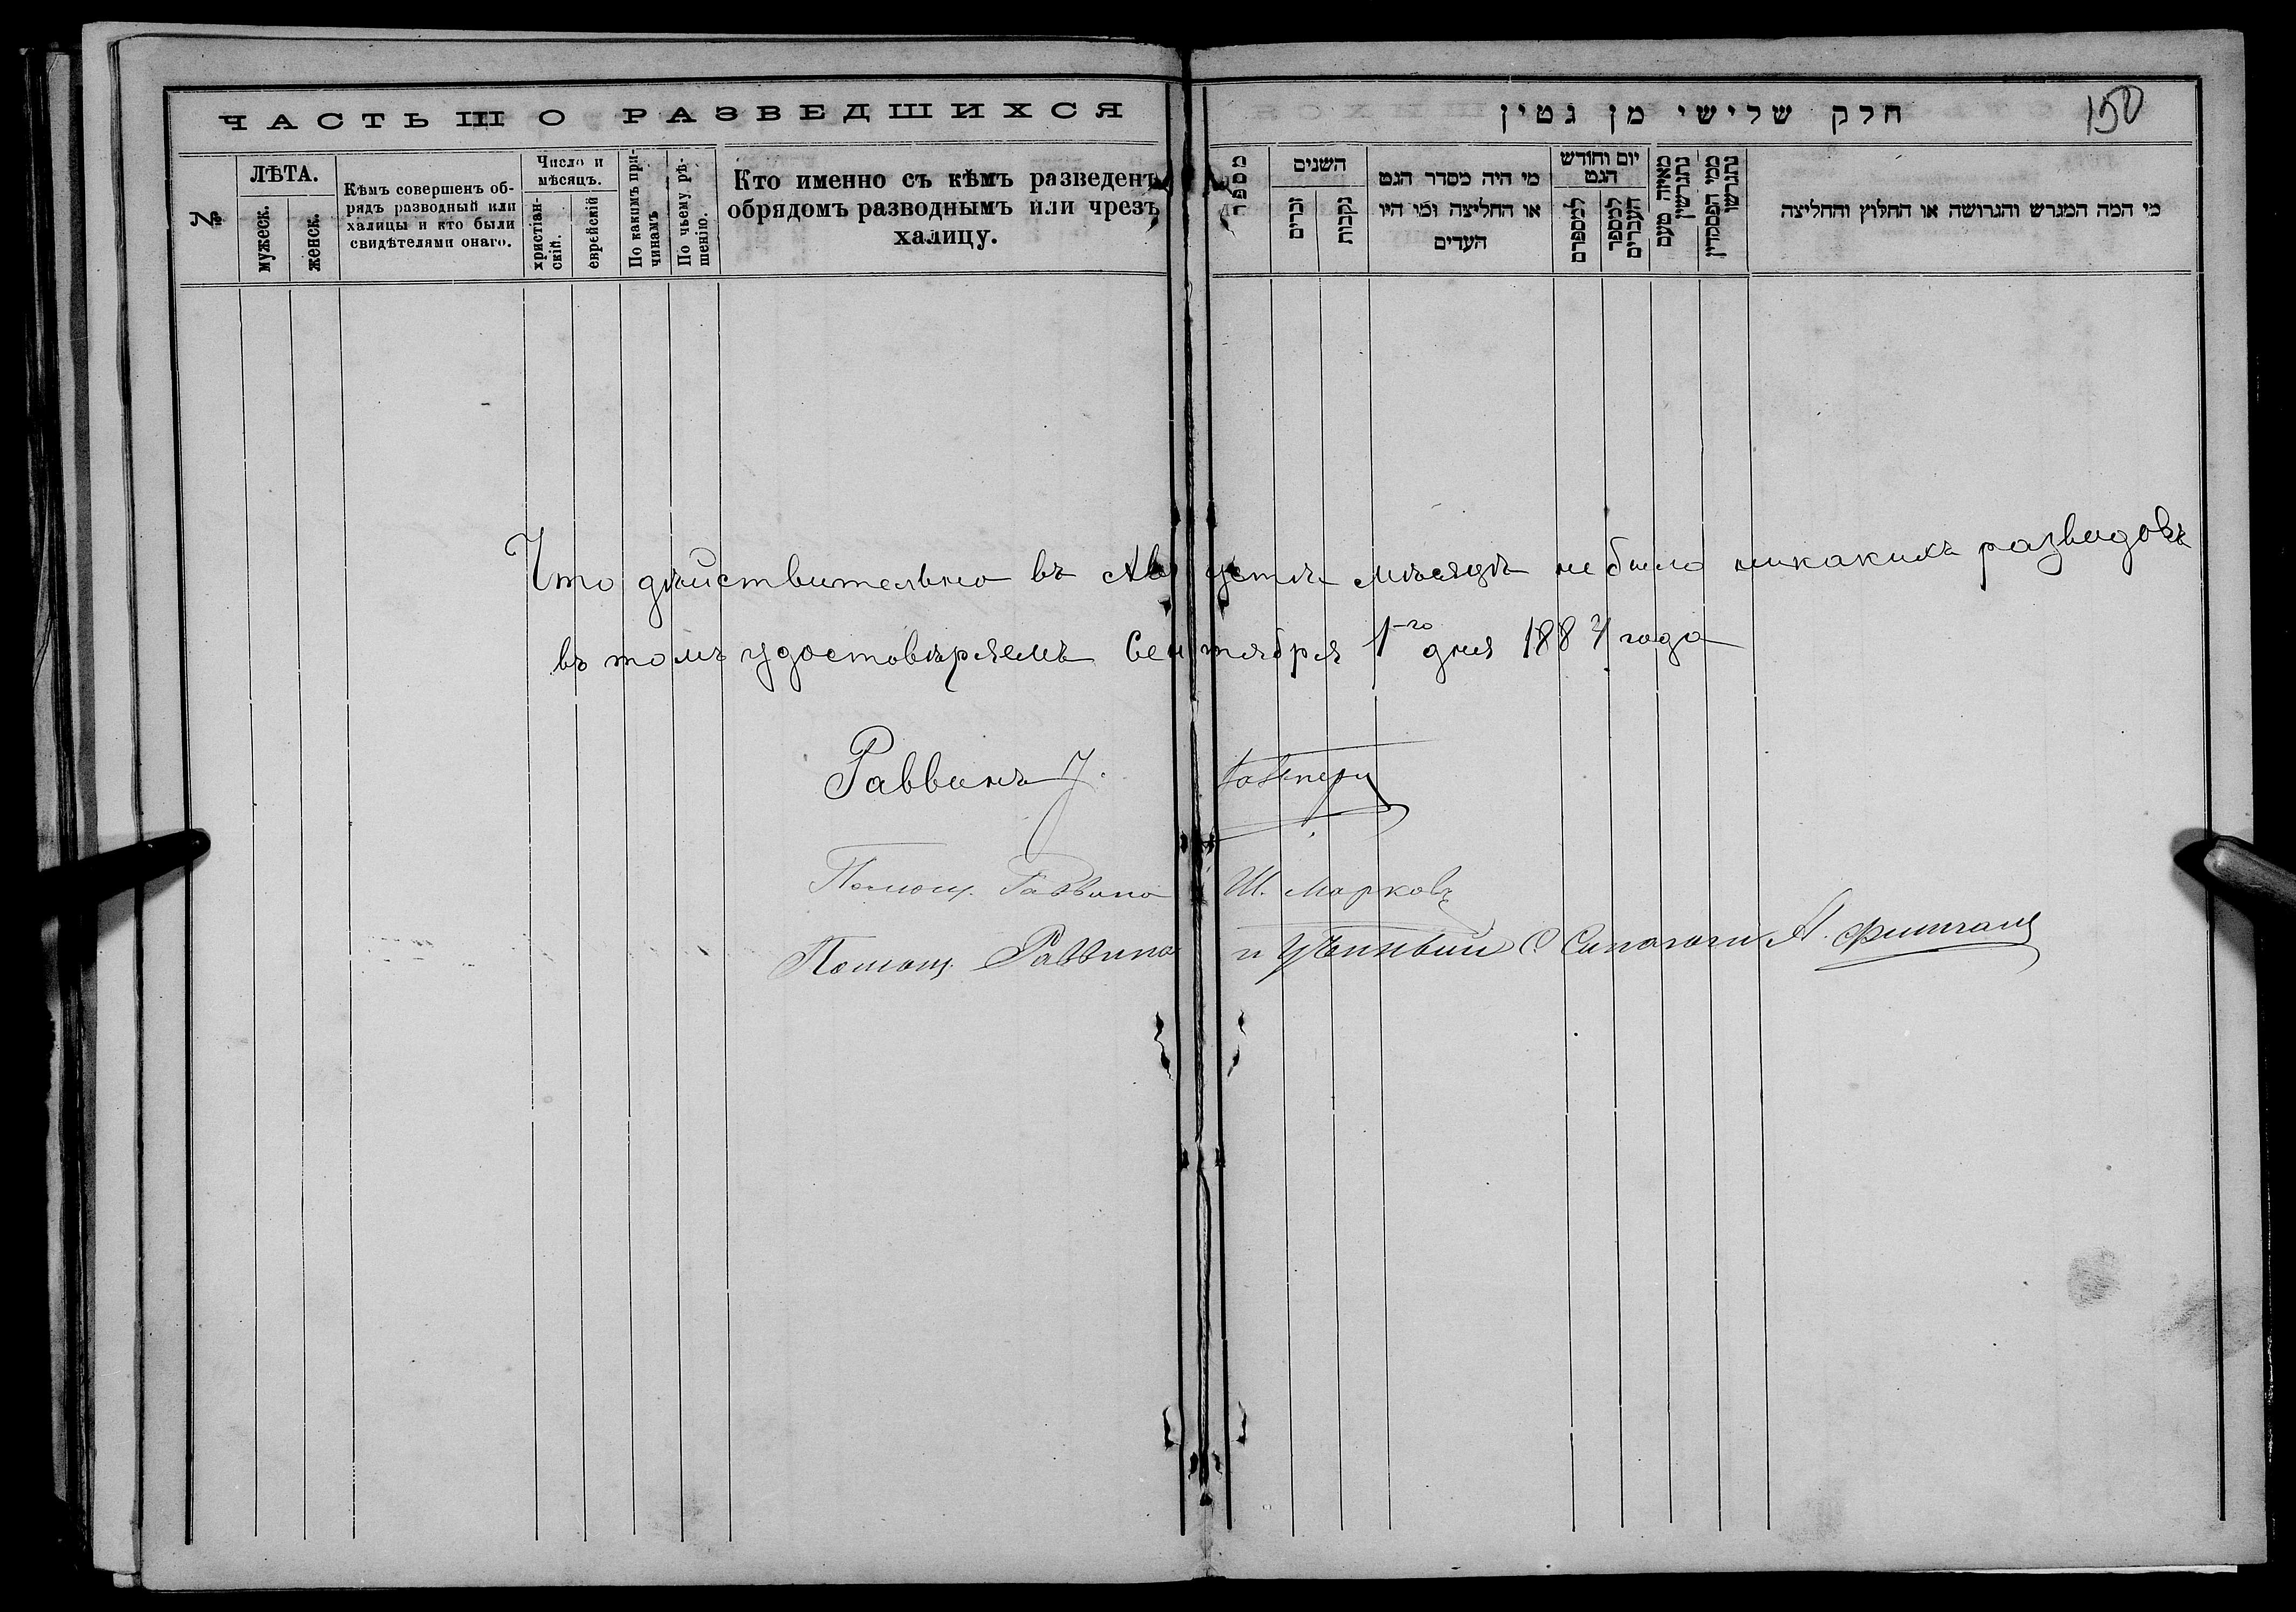 ЧАСТЬ III О РАЗВЕДШИХСЯ
№
ЛѢТА.
мужеск.
женск.
Кѣмъ совершенъ об-
рядъ разводный или
халицы и кто были
свидѣтелями онаго.
Число и
мѣсяцъ.
христіан-
скій.
еврейскій
По какимъ при-
чинамъ
По чьему рѣ-
шенію.
Кто именно съ кѣмъ разведенъ
обрядомъ разводнымъ или чрезъ
халицу.
חלק שלישי מן גטין
150
מספר
השנים
זכרים
נקבות
מי היה מסדר הגט
או החליצה ומי היו
העדים
יום וחודש
הגט
למספרם
למספר
העברים
מאיזה טעם
נתגרשו
ממי הפסדין
נתגרשו
מי המה המגרש והגרושה או החלוץ והחליצה
Что дѣйствительно въ Августѣ мѣсяцѣ не было никакихъ разводовъ
въ томъ удостовѣряемъ Сентября 1-го дня 1887 года
Раввинъ
Помощ. Раввина Ш. Марковъ
Помощ. Раввина и А. Фишман